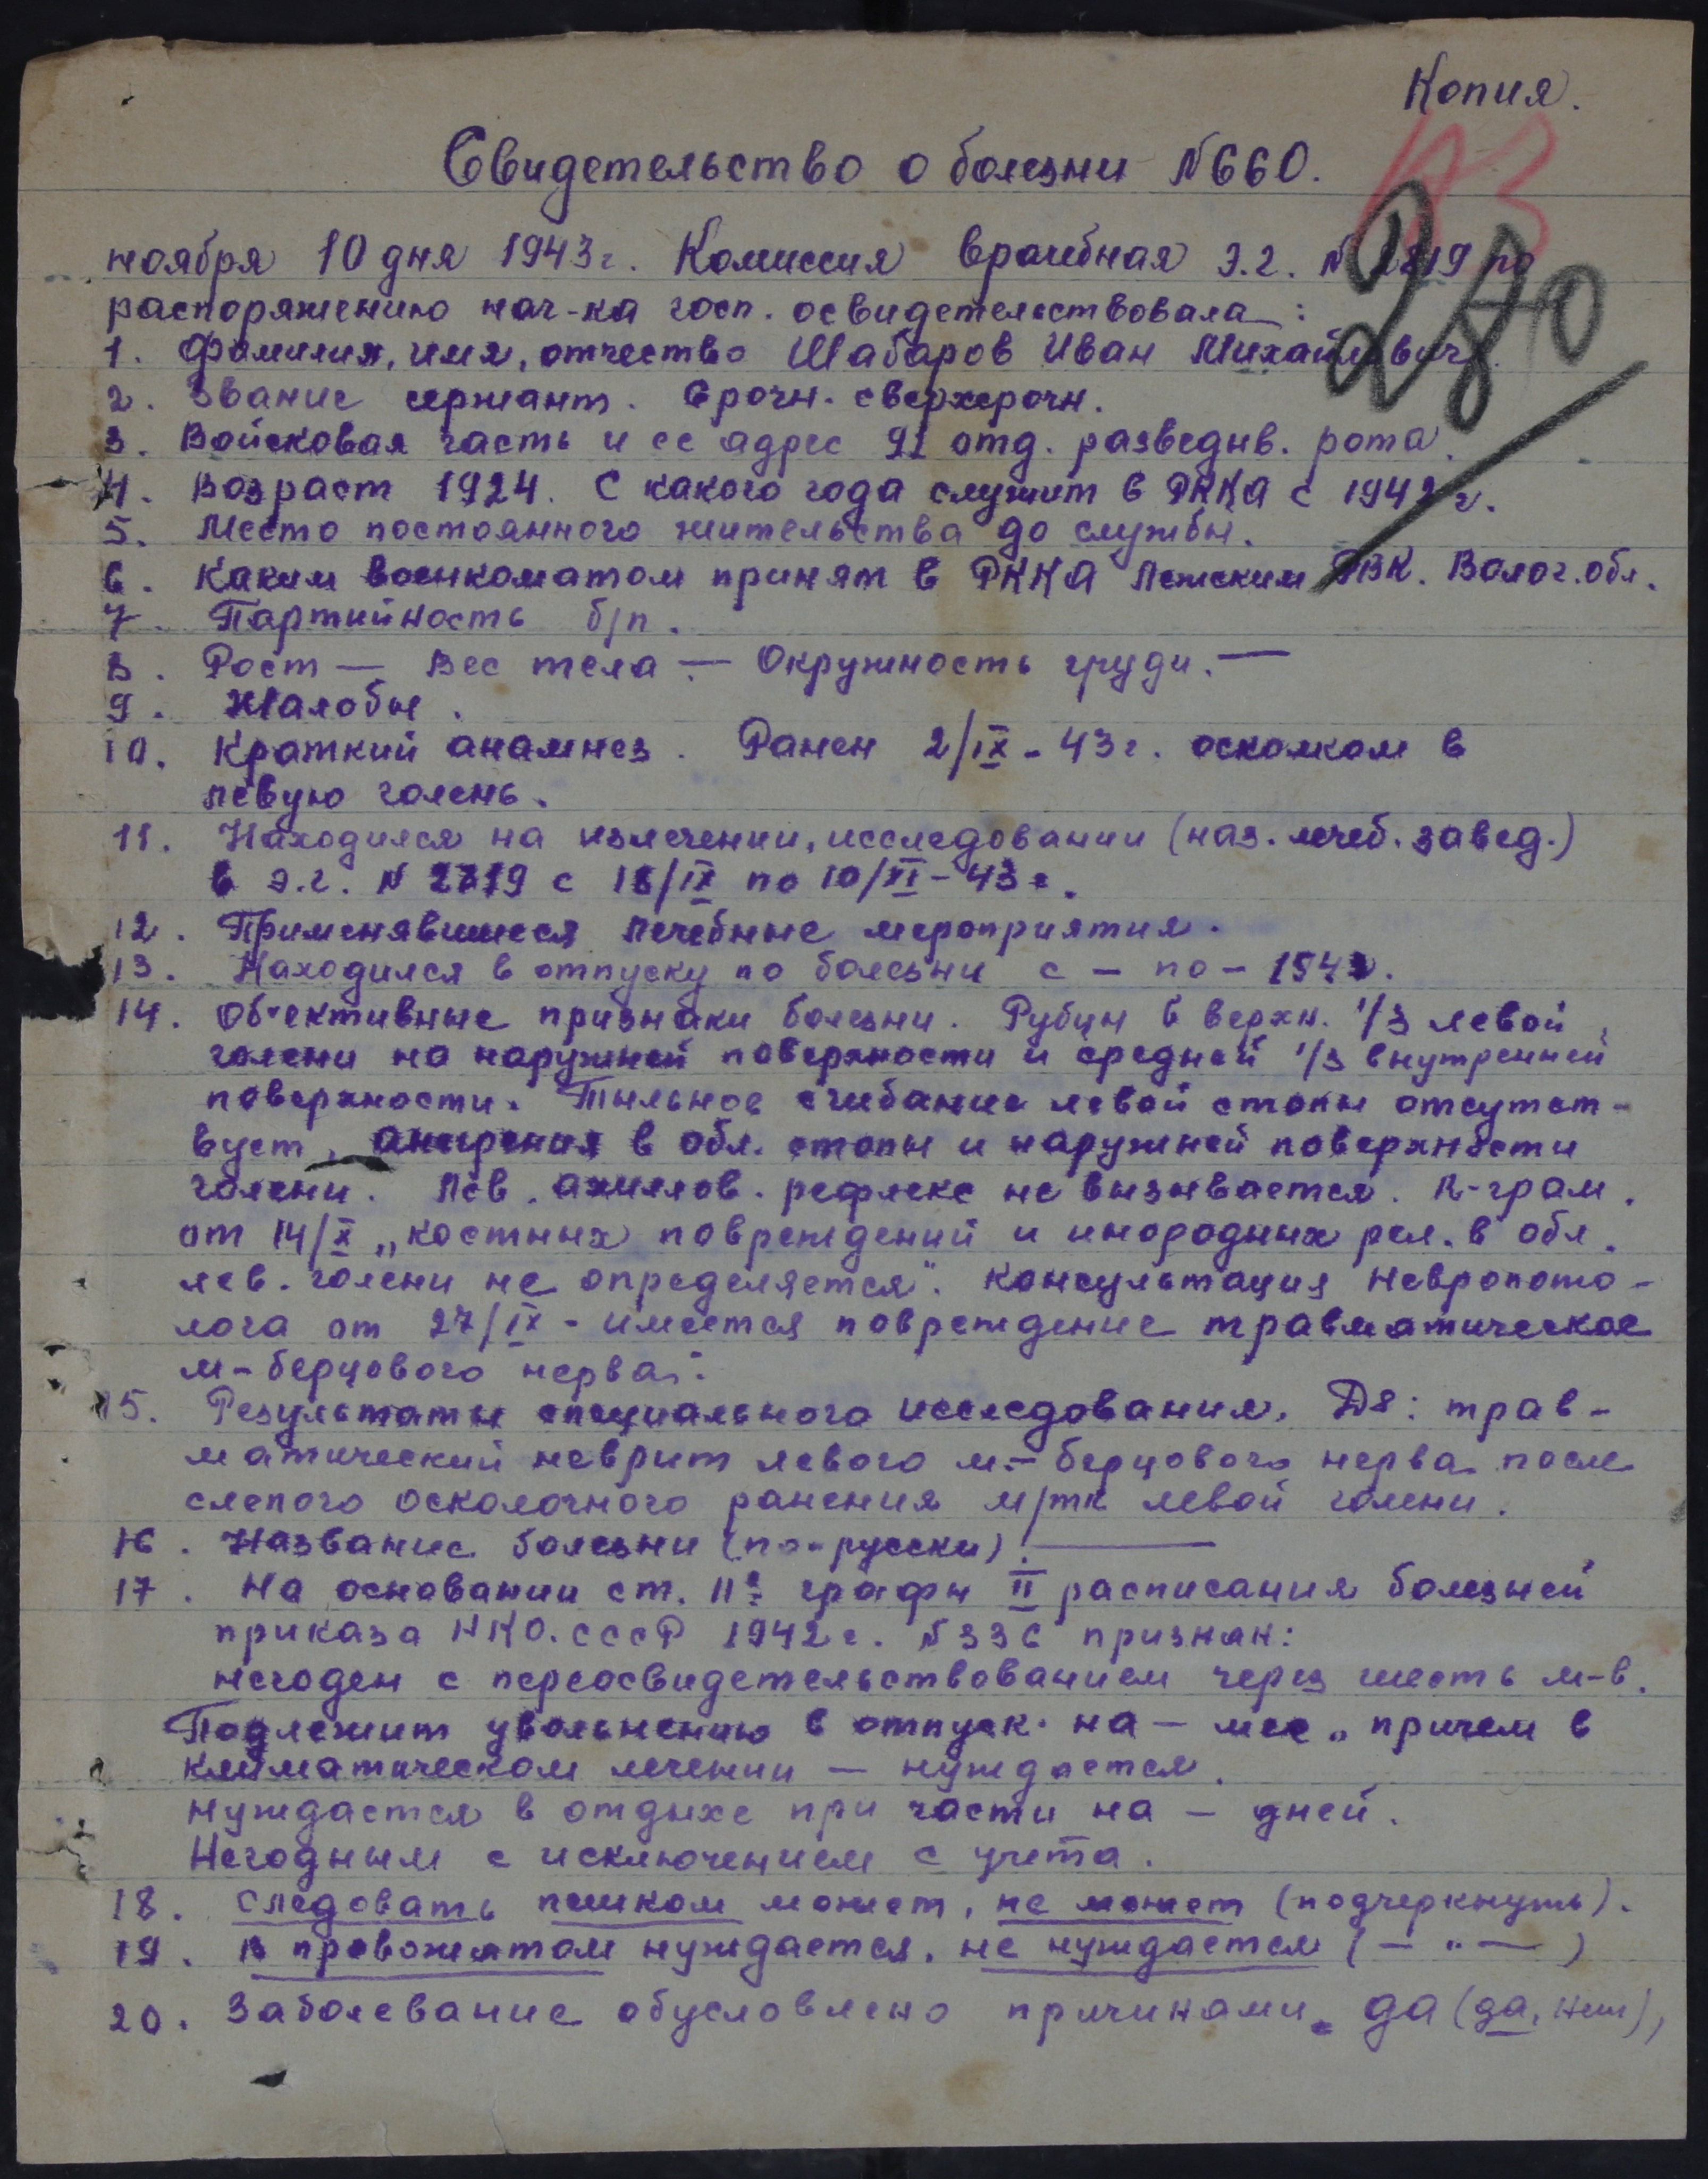 Копия.
Свидетельство о болезни №660.
ноября 10 дня 1943г. Комиссия врачебная э.г. № 2819 по
распоряжению нач-ка госп. освидетельствовала:
1. Фамилия, имя, отчество Шабаров Иван Михайлович.
2. Звание сержант. Срочн. сверхсрочн.
3. Войсковая часть и ее адрес 91 отд. разведыв. рота.
4. Возраст 1924. С какого года служит в РККА с 1942 г.
5. Место постоянного жительства до службы.
6. Каким военкоматом принят в РККА Лежским РВК. Волог. обл.
7. Партийность б/п.
8. Рост — Вес тела — Окружность груди. —
9. Жалобы.
10. Краткий анамнез. Ранен 2/IX - 43г. осколком в
левую голень.
11. Находился на излечении, исследовании (наз. лечеб. завед.)
в э.г. № 2819 с 18/IX по 10/XI - 43г.
12. Применявшиеся лечебные мероприятия.
13. Находился в отпуску по болезни с — по — 1943.
14. Об'ективные признаки болезни. Рубцы в верхн. 1/3 левой
голени на наружней поверхности и средней 1/3 внутренней
поверхности. Тыльное сгибание левой стопы отсутст-
вует, в обл. стопы и наружней поверхности
голени. Лев. ахиллов. рефлекс не вызывается. R-грам.
от 14/X „костных повреждений и инородных рел. в обл.
лев. голени не определяется". Консультация невропато-
лога от 27/IX - имеется повреждение травматическое
м-берцового нерва".
15. Результаты специального исследования. Ds: трав-
матический неврит левого м-берцового нерва после
слепого осколочного ранения м/тк левой голени.
16. Название болезни (по-русски) —
17. На основании ст. 11а графы II расписания болезней
приказа НКО. СССР 1942г. №336 признан:
негоден с переосвидетельствованием через шесть м-в.
Подлежит увольнению в отпуск на — мес„ причем в
климатическом лечении — нуждается.
нуждается в отдыхе при части на — дней.
Негодным с исключением с учета.
18. Следовать пешком может, не может (подчеркнуть).
19. В провожатом нуждается, не нуждается (— " —)
20. Заболевание обусловлено причинами. да (да, нет),
280